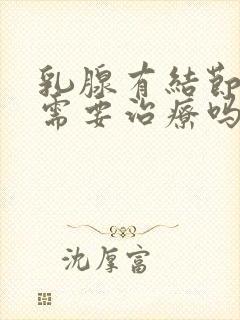 乳腺有結節
需要治療吗
沈厚富